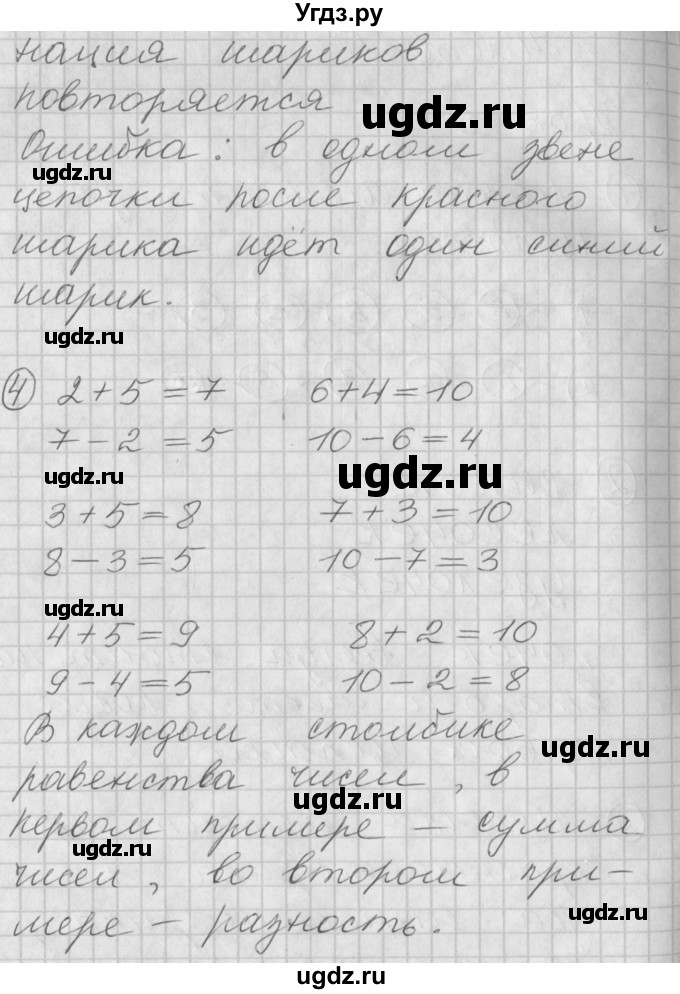 Угдз.ру
нация шариков
повторяется
ugdz.ru
Ошибка: в одном звене
ugdz.ru
цепочки после красного
шарика идёт один синий
шарик.
ugdz.ru
4 2+5=7 6+4=10
7-2=5 10-6=4
ugdz.ru ugdz.ru
3+5=8 7+3=10
8-3=5 10-7=3
ugdz.ru
4+5=9 8+2=10
9-4=5 10-2=8
В каждом столбике
ugdz.ru
равенства чисел, в
ugdz.ru
первом примере – сумма
ugdz.ru
чисел, во втором при-
ugdz.ru
мере – разность.
ugdz.ru